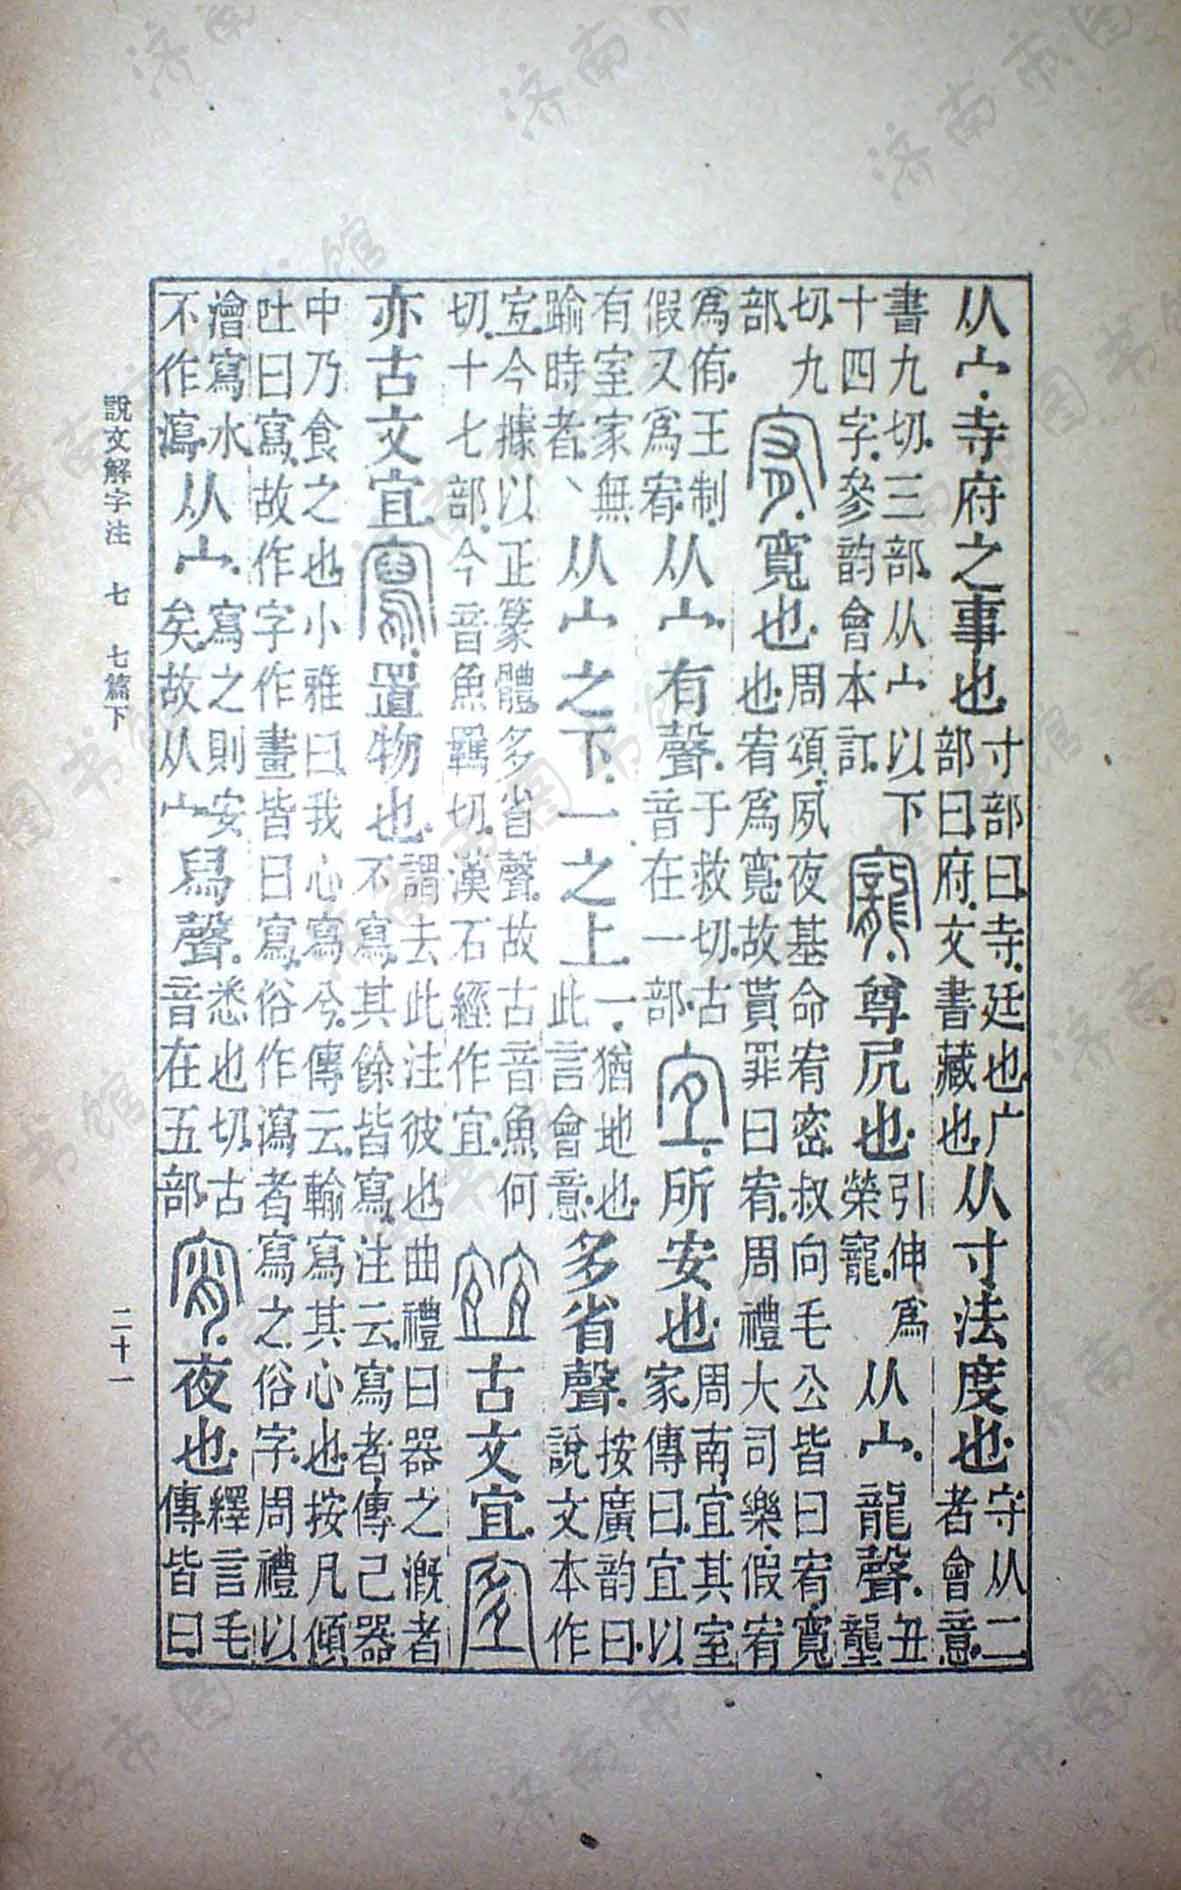 从宀.寺府之事也寸部曰寺.廷也广部曰.府.文書藏也.从寸法度也.守从二者會意.
書九切.三部.从宀以下十四字.參韵會本訂.寵.尊凥也.引伸爲榮寵.从宀.龍聲.丑壟
切.九部.宥.寬也.周頌.夙夜基命宥密.叔向毛公皆曰宥.寬也.宥爲寬.故貰罪曰宥.周禮大司樂.假宥
爲侑.王制.假又爲宥.从宀.有聲.于救切.古音在一部.宐.所安也.周南宜其室家.傳曰.宜以
有室家無踰時者.从宀之下.一之上.一.猶地也.此言會意.多省聲.按廣韵曰.說文本作
宐.今據以正篆體.多省聲.故古音魚何切.十七部.今音魚羈切.漢石經作宜.古文宜.
亦古文宜寫.置物也.謂去此注彼也曲禮曰器之漑者不寫.其餘皆寫.注云.寫者.傳己器
中乃食之也小雅曰.我心寫兮.傳云.輸寫其心也.按凡傾吐曰寫.故作字作畫皆曰寫.俗作瀉者.寫之俗字.周禮以
澮寫水不作瀉.从宀.寫之則安矣.故从宀舄聲.悉也切.古音在五部宵.夜也.釋言毛傳皆曰.
說文解字注 七 七篇下 二十一